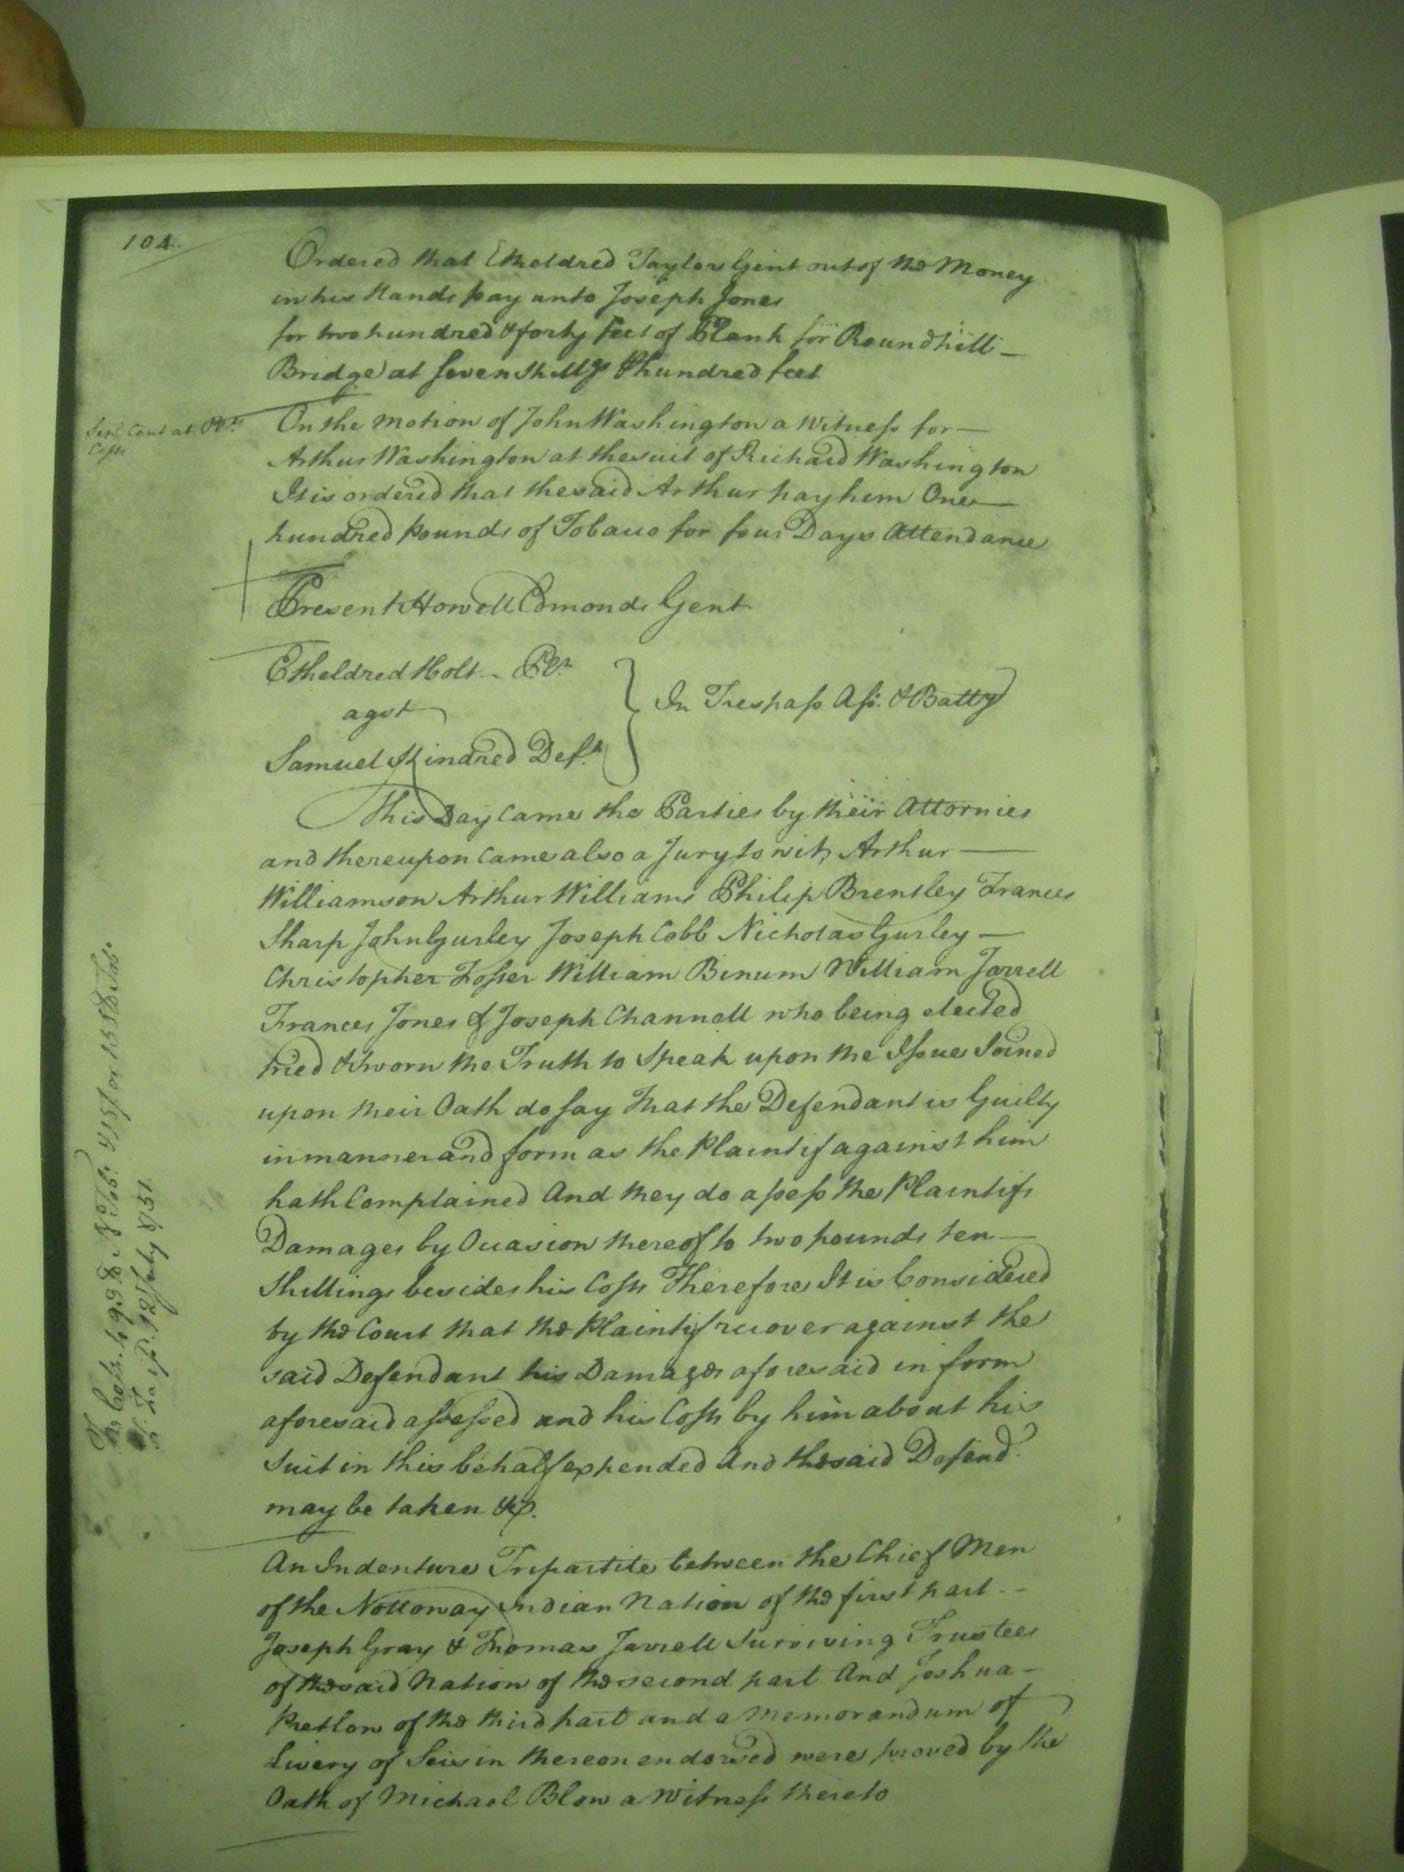 104.
Ordered that Etheldred Taylor Gent out of the Money
in his Hands pay unto Joseph Jones
for two hundred & forty feet of Plank for Roundhill
Bridge at seven Shillgs ℔ hundred feet
On the Motion of John Washington a Witness for
Arthur Washington at the suit of Richard Washington
It is ordered that the said Arthur pay him One
hundred pounds of Tobacco for four Days Attendance
Present Howell Edmonds Gent
Etheldred Holt Plt.
agst
Samuel Kindred Deft.
In Trespass Ass: & Batty
This Day Came the Parties by their Attornies
and thereupon Came also a Jury to wit, Arthur
Williamson Arthur Williams Philip Brentley Frances
Sharp John Gurley Joseph Cobb Nicholas Gurley
Christopher Foster William Binum William Jarrell
Frances Jones & Joseph Channell who being elected
tried & sworn the Truth to Speak upon the Issue Joined
upon their Oath do say That the Defendant is Guilty
in manner and form as the Plaintif against him
hath Complained And they do assess the Plaintifs
Damages by Occasion thereof to two pounds ten
Shillings besides his Costs Therefore It is Considered
by the Court that the Plaintif recover against the
said Defendant his Damages aforesaid in form
aforesaid assessed and his Costs by him about his
Suit in this behalf expended And the said Defend.
may be taken &c.
An Indenture Tripartite between the Chief Men
of the Nottoway Indian Nation of the first part
Joseph Gray & Thomas Jarrell Surviving Trustees
of the said Nation of the second part And Joshua
Pretlow of the third part and a Memorandum of
Livery of Seisin thereon endorsed were proved by the
Oath of Michael Blow a Witness thereto